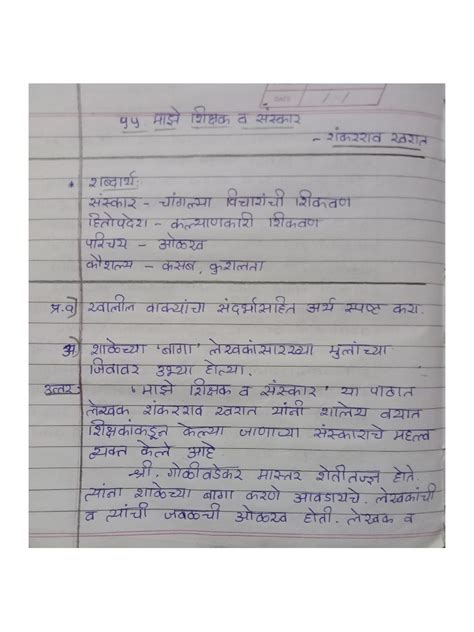 DATE / /
१५ माझे शिक्षक व संस्कार
- शंकरराव खरात
• शब्दार्थ:
संस्कार - चांगल्या विचारांची शिकवण
हितोपदेश - कल्याणकारी शिकवण
परिचय - ओळख
कौशल्य - कसब, कुशलता
प्र.१) खालील वाक्यांचा संदर्भासहित अर्थ स्पष्ट करा.
अ) शाळेच्या 'बागा' लेखकांसारख्या मुलांच्या
जिवावर उभ्या होत्या.
उत्तर: 'माझे शिक्षक व संस्कार' या पाठात
लेखक शंकरराव खरात यांनी शालेय वयात
शिक्षकांकडून केल्या जाणाऱ्या संस्काराचे महत्त्व
व्यक्त केले आहे
श्री. गोळीवडेकर मास्तर शेतीतज्ज्ञ होते.
त्यांना शाळेच्या बागा करणे आवडायचे. लेखकांची
व त्यांची जवळची ओळख होती. लेखक व